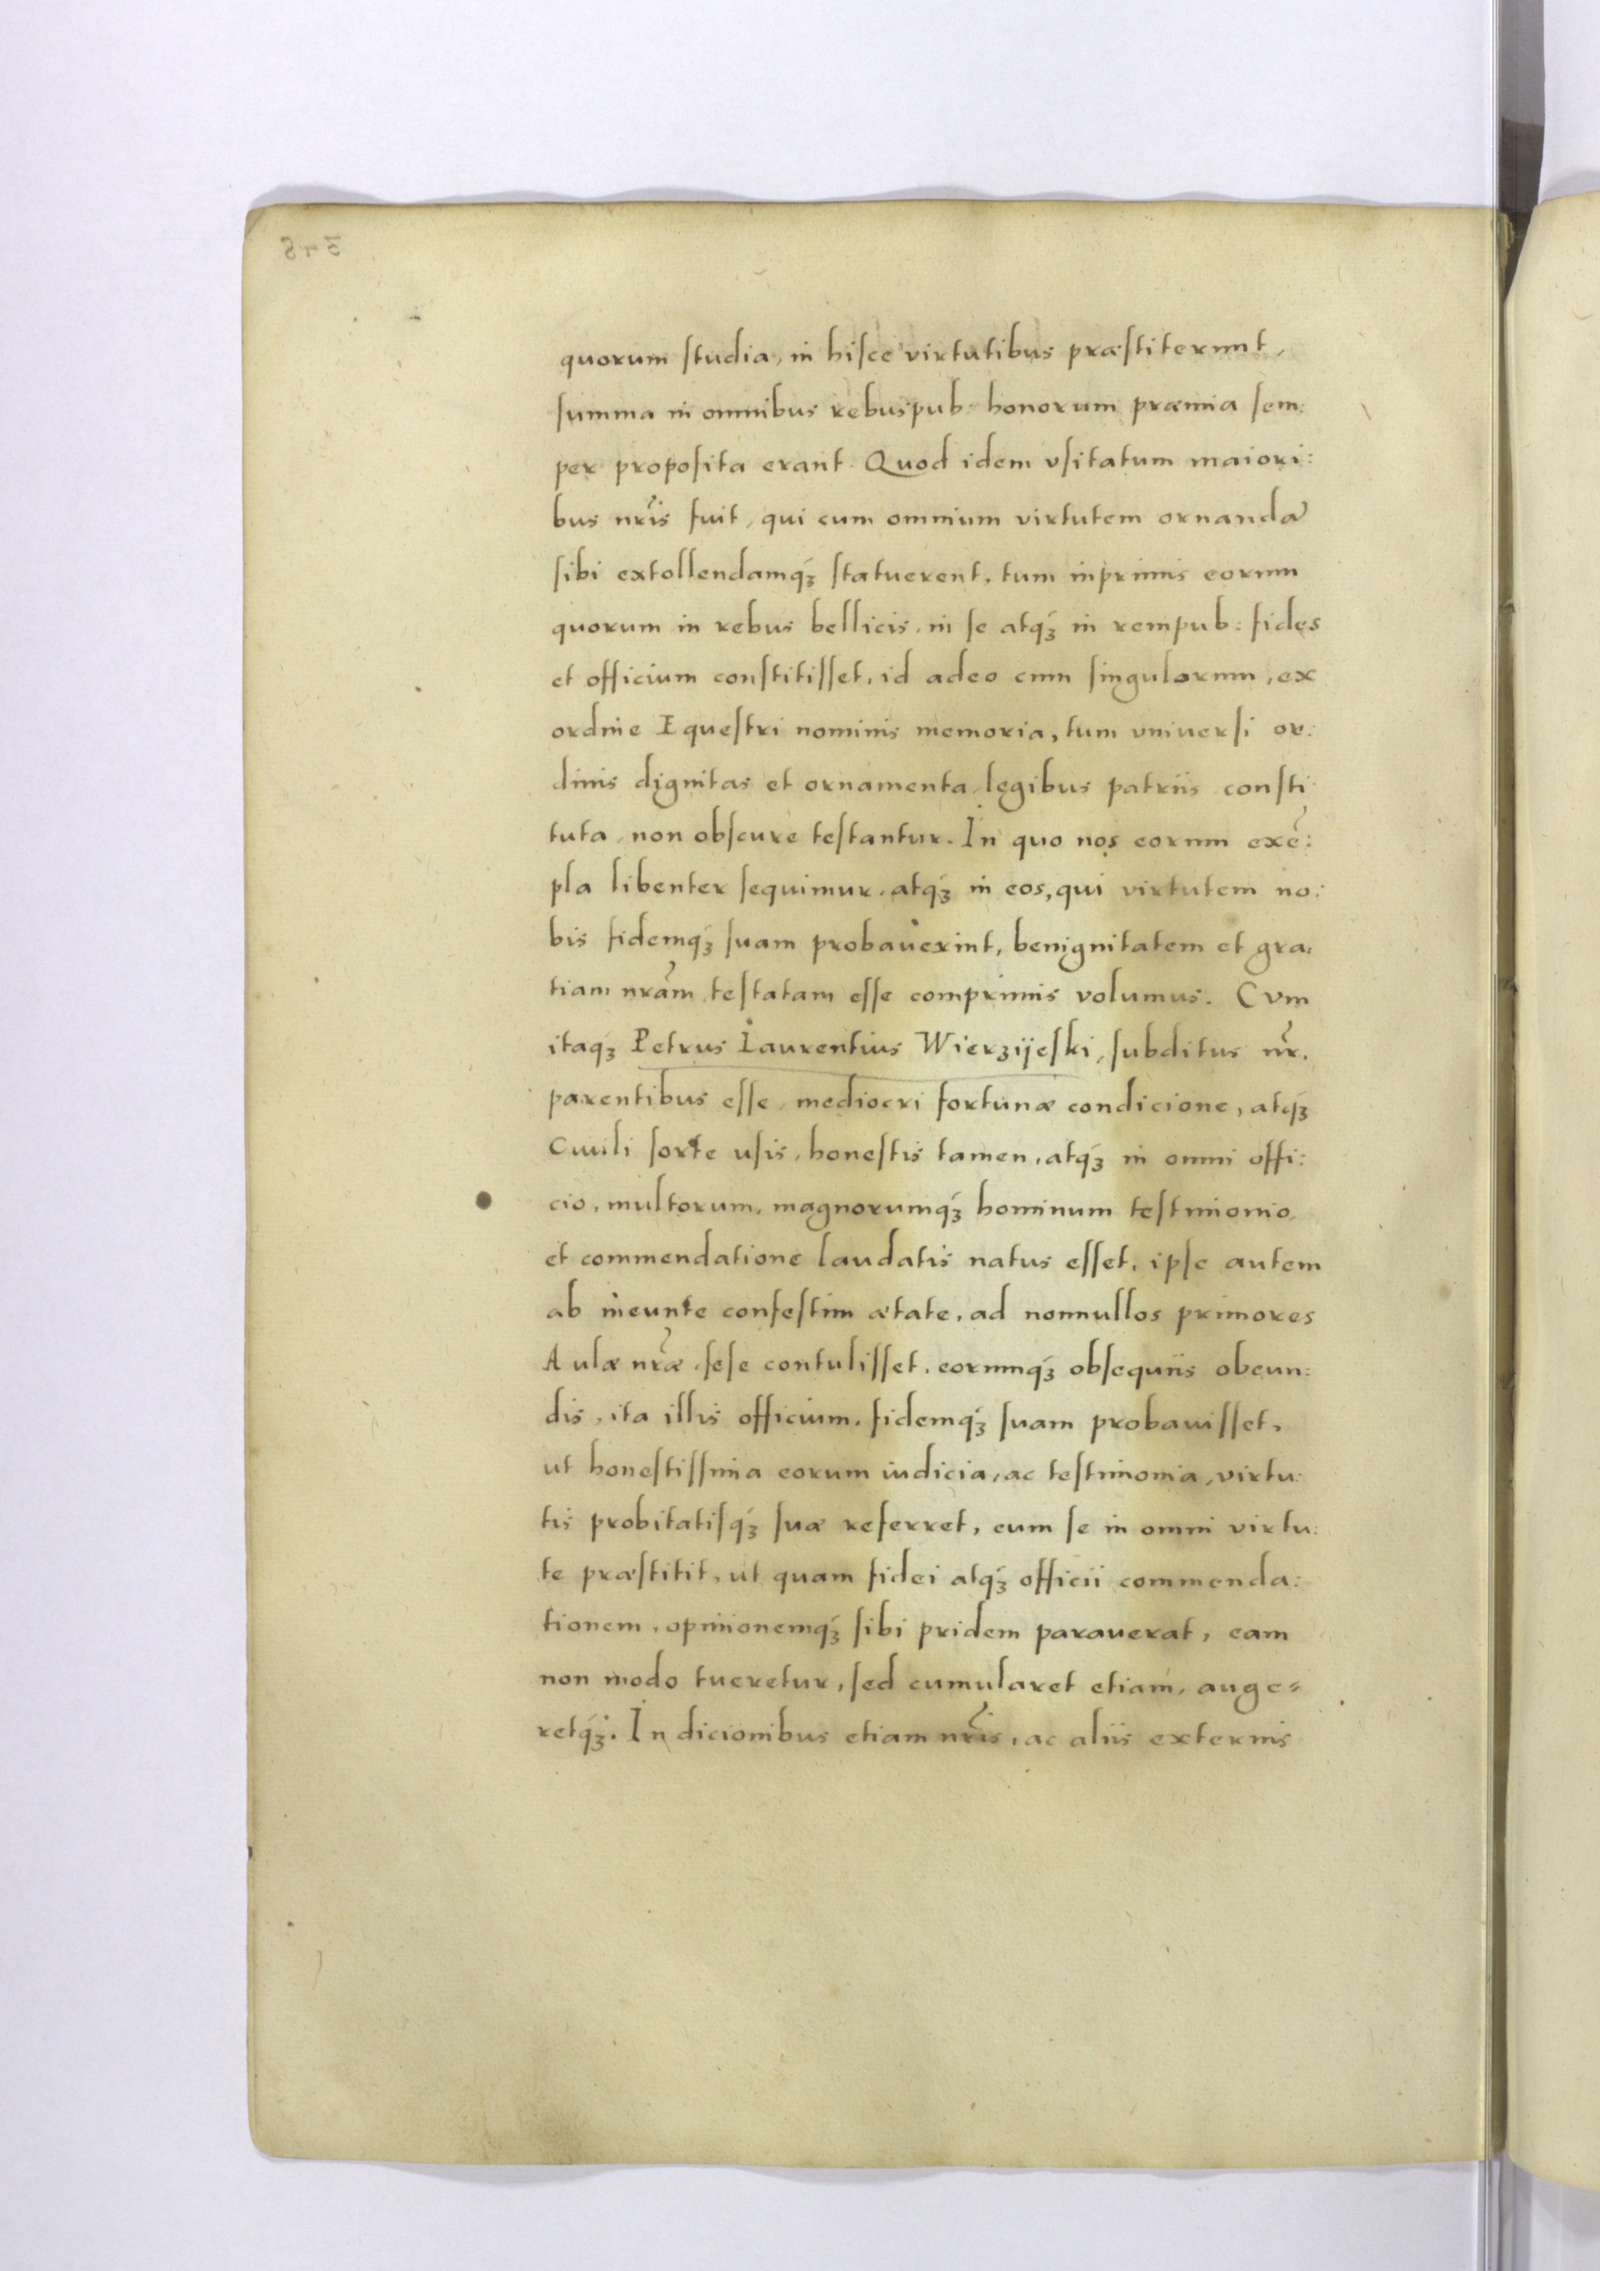 quorum ſtudia, in hiſce virtutibus præſtiterunt,
ſumma in omnibus rebuspub: honorum præmia ſem:
per propoſita erant. Quod idem vſitatum maiori:
bus nr̃is fuit, qui cum omnium virtutem ornandã
ſibi extollendamqꝫ ſtatuerent, tum inprimis eorum
quorum in rebus bellicis, in ſe atqꝫ in rempub: fides
et officium conſtitiſſet, id adeo cum ſingulorum, ex
ordine Equeſtri nominis memoria, tum vniuerſi or:
dinis dignitas et ornamenta, legibus patriis conſti
tuta, non obſcure teſtantur. In quo nos eorum exẽ:
pla libenter ſequimur, atqꝫ in eos, qui virtutem no:
bis fidemqꝫ ſuam probauerint, benignitatem et gra:
tiam nrãm teſtatam eſſe comprimis volumus. Cvm
itaqꝫ Petrus Laurentius Wierzijeſki, ſubditus nr̃.
parentibus eſſe, mediocri fortunæ condicione, atqꝫ
Ciuili ſorte uſis, honeſtis tamen, atqꝫ in omni offi:
cio, multorum, magnorumqꝫ hominum teſtimonio,
et commendatione laudatis natus eſſet, ipſe autem
ab ineunte confeſtim ætate, ad nonnullos primores
Aulæ nr̃æ, ſeſe contuliſſet, eorumqꝫ obſequiis obeun:
dis, ita illis officium, fidemqꝫ ſuam probauiſſet,
ut honeſtiſſima eorum iudicia, ac teſtimonia, virtu:
tis probitatiſqꝫ ſuæ referret, eum ſe in omni virtu:
te præſtitit, ut quam fidei atqꝫ officii commenda:
tionem, opinionemqꝫ ſibi pridem parauerat, eam
non modo tueretur, ſed cumularet etiam, auge=
retqꝫ. In dicionibus etiam nr̃is, ac aliis externis